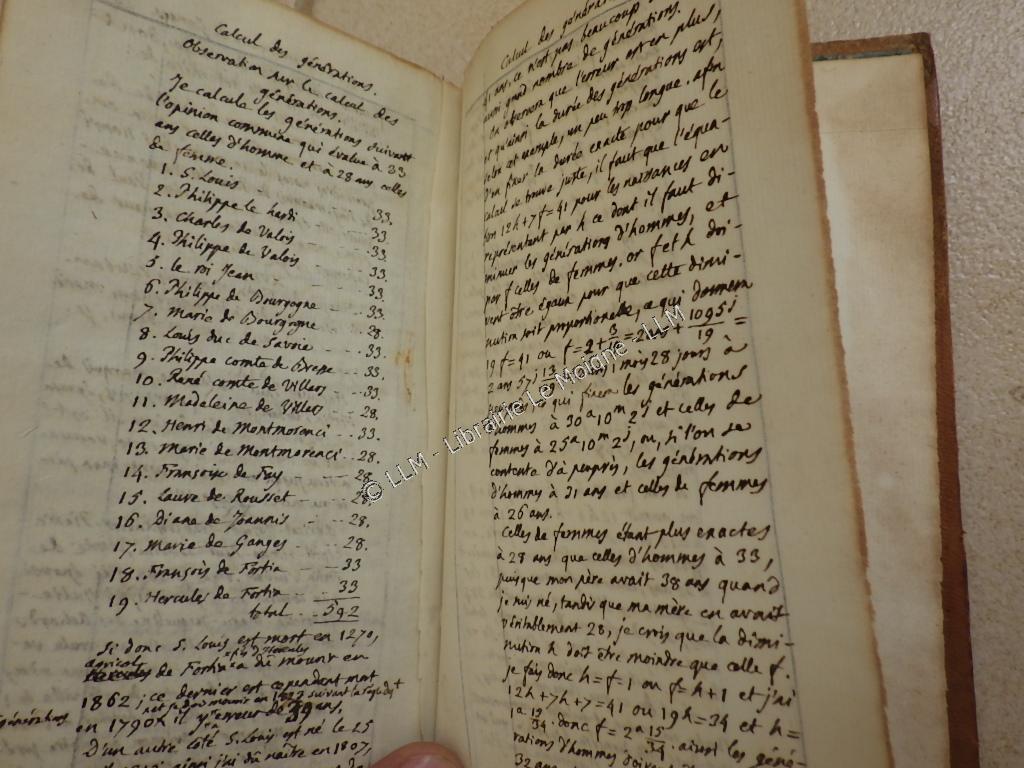 Calcul des générations.
Observation sur le calcul des
générations.
Je calcule les générations suivant
l'opinion commune qui évalue à 33
ans celles d'homme et à 28 ans celles
de femme.
1. S. Louis
2. Philippe le hardi 33.
3. Charles de Valois 33.
4. Philippe de Valois 33.
5. le roi Jean 33.
6. Philippe de Bourgogne 33.
7. Marie de Bourgogne 28.
8. Louis duc de Savoie 33.
9. Philippe comte de Bresse 33.
10. René comte de Villars 33.
11. Madeleine de Villars 28.
12. Henri de Montmorenci 33.
13. Marie de Montmorenci 28.
14. Françoise de Fay 28.
15. Laure de Rousset 28.
16. Diane de Joannis 28.
17. Marie de Ganges 28.
18. François de Fortia 33
19. Hercules de Fortia 33
total 592
Si donc S. Louis est mort en 1270,
agricol fils d'Hercules
de Fortia a dû mourir en
1862; ce dernier est cependant mort
en 1790 il y erreur de ans,
D'un autre côté S. Louis est né le 25
ainsi j'ai dû naître en 1807,
générations
Calcul des
41 ans, ce n'est pas beaucoup
aussi grand nombre de générations.
On observera que l'erreur est en plus,
et qu'ainsi la durée des générations est,
selon cet exemple, un peu trop longue. afin
D'en fixer la durée exacte pour que le
calcul se trouve juste, il faut que l'équa-
tion 12h+7f=41 pour les naissances en
représentant par h ce dont il faut di-
minuer les générations d'hommes, et
par f celles de femmes. or f et h doi-
vent être égaux pour que cette dimi-
nution soit proportionelle, ce qui donnera
19f=41 ou f=2+3/19=2 + 1095j/19 =
2 ans 57j 1 mois 28 jours à
ce qui fixera les générations
d'hommes à 30a 10m 2j et celles de
femmes à 25a 10m 2j, ou, si l'on se
contente d'à peu près, les générations
d'hommes à 31 ans et celles de femmes
à 26 ans.
Celles de femmes étant plus exactes
à 28 ans que celles d'hommes à 33,
puisque mon père avait 38 ans quand
je suis né, tandis que ma mère en avait
véritablement 28, je crois que la dimi-
nution h doit être moindre que celle f.
je fais donc h=f-1 ou f=h+1 et j'ai
12h+7h+7=41 ou 19h=34 et h=
donc f=2a 15/34. ainsi les géné-
rations d'hommes doivent
32 ans
© LLM - Librairie Le Moigne - LLM